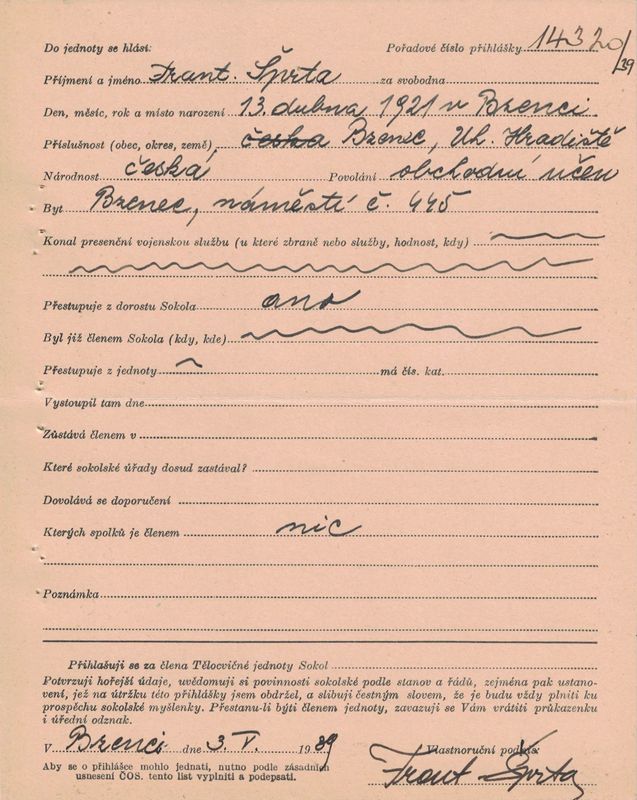 Do jednoty se hlásí: Pořadové číslo přihlášky 14320/39
Příjmení a jméno Frant. Šprta za svobodna
Den, měsíc, rok a místo narození 13. dubna 1921 v Bzenci.
Příslušnost (obec, okres, země), česka Bzenec, Uh. Hradiště
Národnost česká Povolání obchodní učeň
Byt Bzenec, náměstí č. 445
Konal presenční vojenskou službu (u které zbraně nebo služby, hodnost, kdy)
Přestupuje z dorostu Sokola ano
Byl již členem Sokola (kdy, kde)
Přestupuje z jednoty má čís. kat.
Vystoupil tam dne
Zůstává členem v
Které sokolské úřady dosud zastával?
Dovolává se doporučení
Kterých spolků je členem nic
Poznámka
Přihlašuji se za člena Tělocvičné jednoty Sokol
Potvrzuji hořejší údaje, uvědomuji si povinnosti sokolské podle stanov a řádů, zejména pak ustano-
vení, jež na útržku této přihlášky jsem obdržel, a slibuji čestným slovem, že je budu vždy plniti ku
prospěchu sokolské myšlenky. Přestanu-li býti členem jednoty, zavazuji se Vám vrátiti průkazenku
i úřední odznak.
V Bzenci dne 3. V. 1939 Vlastnoruční podpis:
Aby se o přihlášce mohlo jednati, nutno podle zásadních
usnesení ČOS. tento list vyplniti a podepsati. Frant Šprta